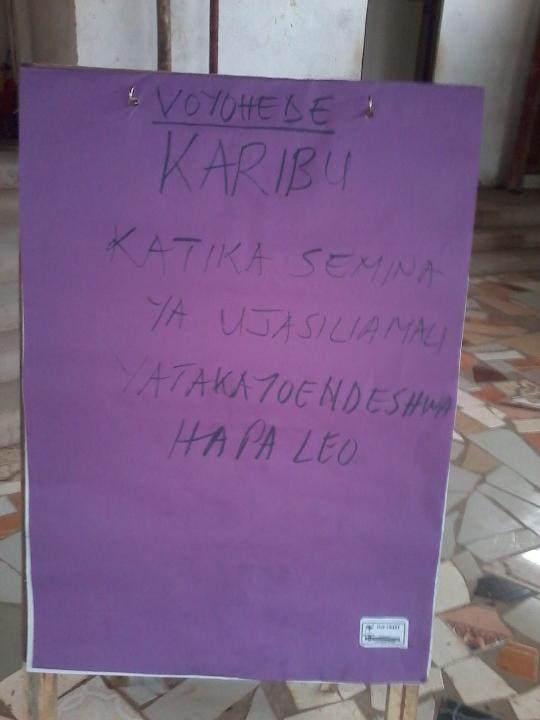 VOYOHEDE
KARIBU
KATIKA SEMINA
YA UJASILIAMALI
YATAKAYOENDESHWA
HAPA LEO